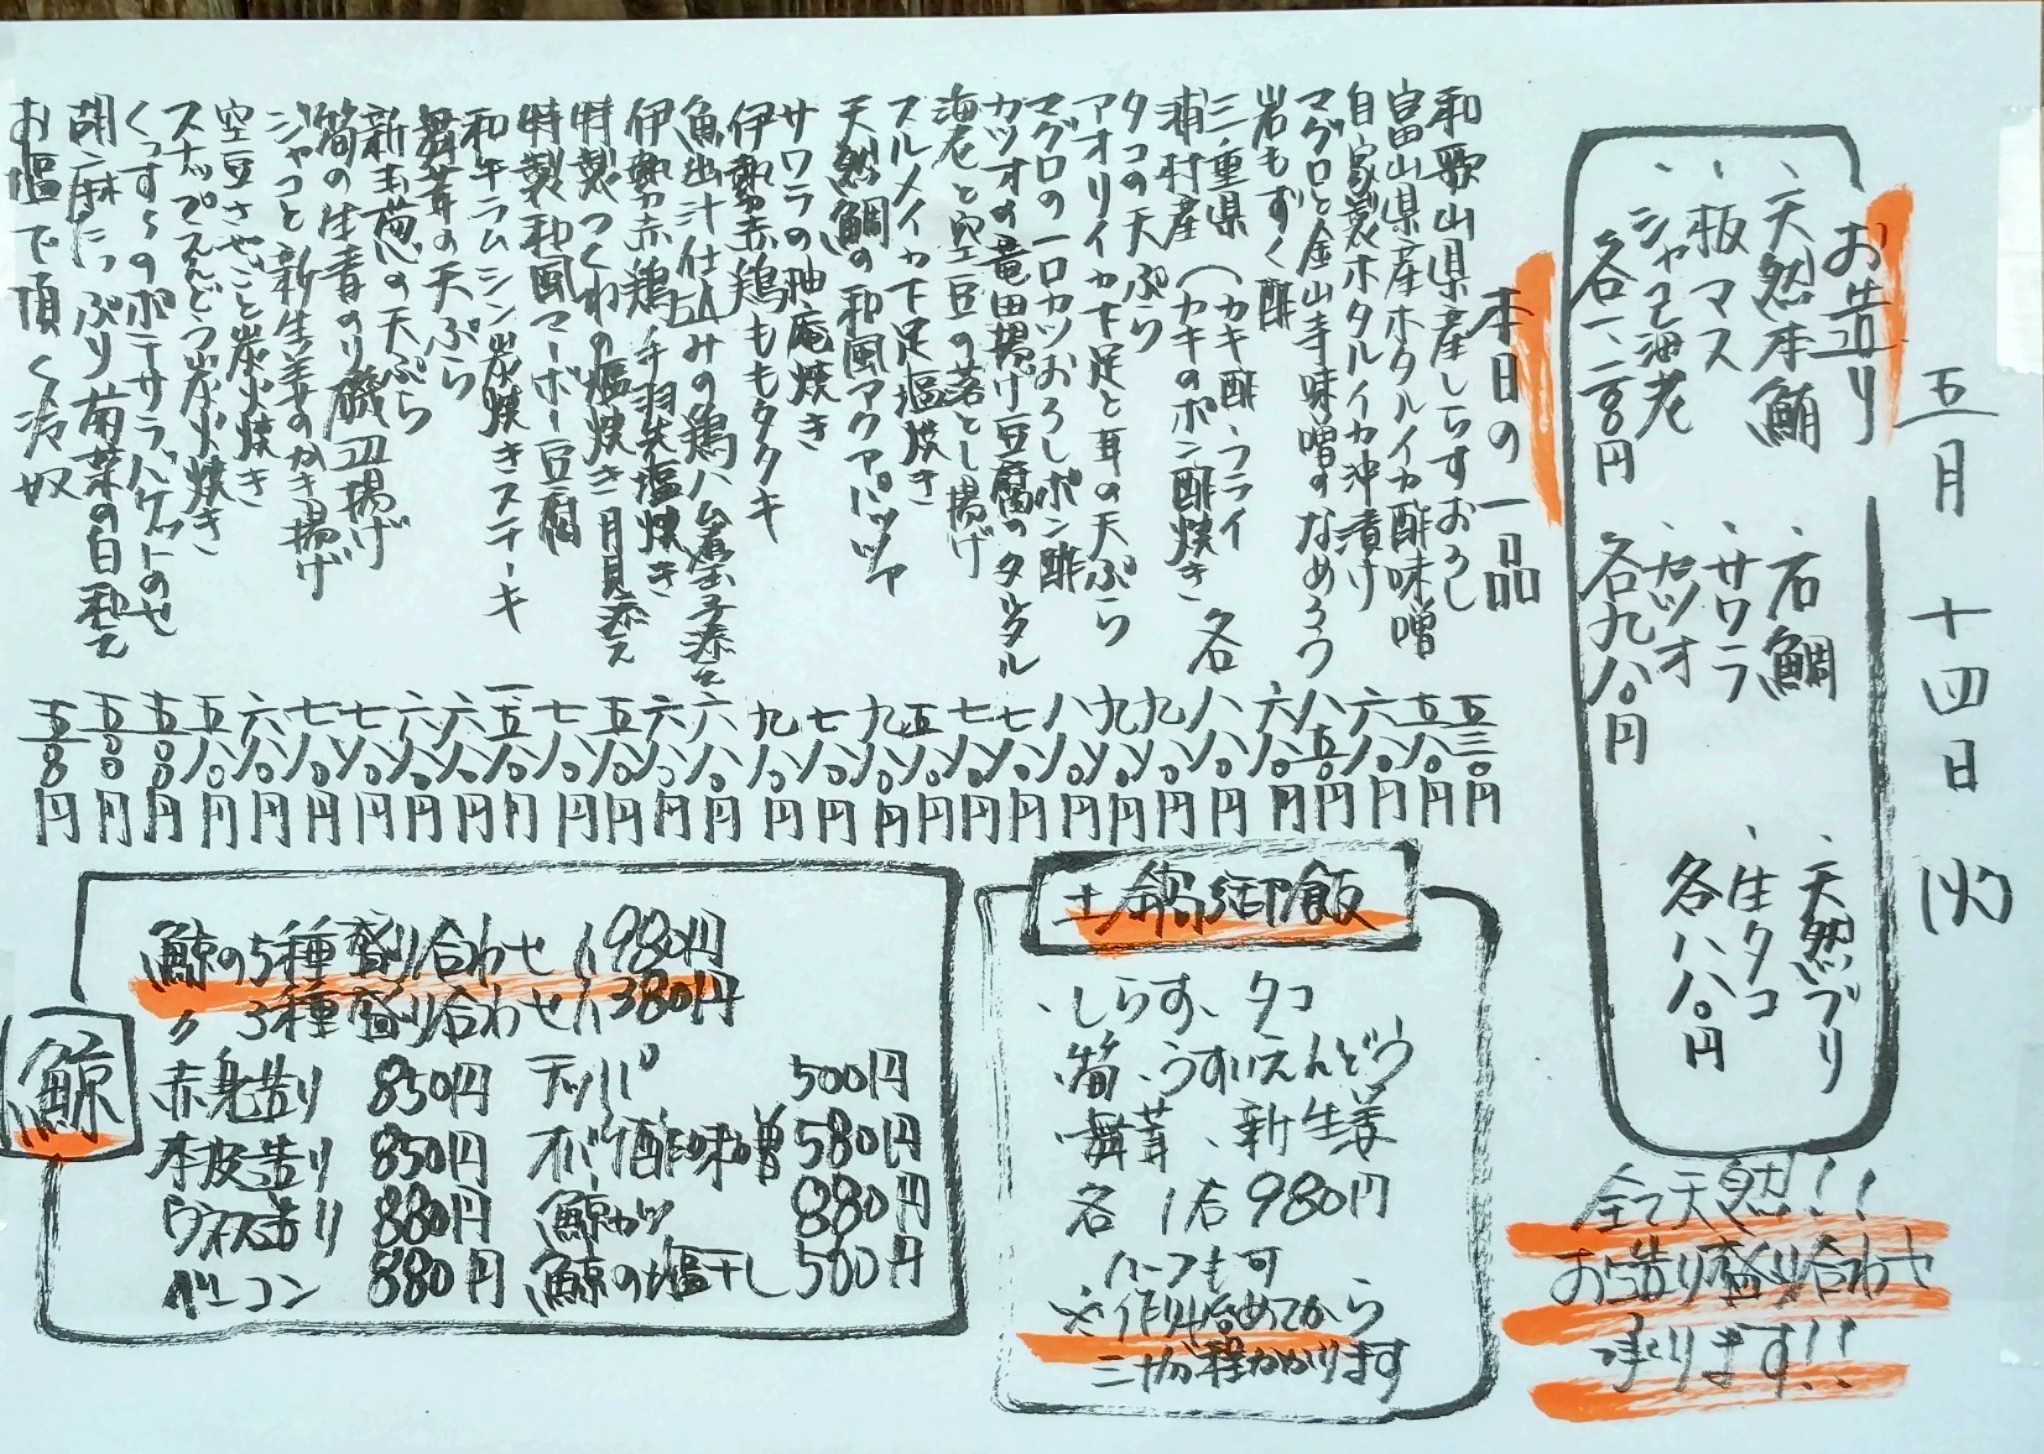 五月十四日(火)
お造り
、天然本鮪
、板マス
、シャコ海老
各一、二八〇円
、石鯛
、サワラ
、カツオ
各九八〇円
、天然ブリ
、生タコ
各八八〇円
全て天然!!
お造り盛り合わせ
承ります!!
本日の一品
和歌山県産しらすおろし 五三〇円
富山県産ホタルイカ酢味噌 五八〇円
自家製ホタルイカ沖漬け 六八〇円
マグロと金山寺味噌のなめろう 八五〇円
岩もずく酢 六八〇円
三重県(カキ酢、フライ
浦村産(カキのポン酢焼き 各 八八〇円
タコの天ぷら 九八〇円
アオリイカ下足と耳の天ぷら 九八〇円
マグロの一口カツおろしポン酢 八八〇円
カツオの竜田揚げ豆腐のタルタル 七八〇円
海老と空豆の落とし揚げ 七八〇円
スルメイカ下足塩焼き 五八〇円
天然鯛の和風アクアパッツァ 九八〇円
サワラの柚庵焼き 七八〇円
伊勢赤鶏ももタタキ 九八〇円
魚出汁仕込みの鶏ハム煮玉子添え 六八〇円
伊勢赤鶏手羽先塩焼き 六八〇円
特製つくねの塩焼き月見添え 五八〇円
特製和風マーボー豆腐 七八〇円
和牛ラムシン炭焼きステーキ 一、五八〇円
舞茸の天ぷら 六八〇円
新玉葱の天ぷら 六八〇円
筍の生青のり磯辺揚げ 七八〇円
ジャコと新生姜のかき揚げ 七八〇円
空豆さやごと炭火焼き 六八〇円
スナップえんどう炭火焼き 五八〇円
くっすぅのポテサラ、バケットのせ 五〇〇円
胡麻たっぷり菊菜の白和え 五〇〇円
お塩で頂く冷奴 五〇〇円
土鍋御飯
、しらす、タコ
、筍、うすいえんどう
、舞茸、新生姜
各 1合 980円
ハーフも可
※作り始めてから
三十分程かかります
鯨
鯨の5種盛り合わせ 1,980円
〃 3種盛り合わせ 1,380円
赤身造り 850円 テッパ 500円
本皮造り 850円 オバケ酢味噌 580円
ウネス造り 880円 鯨カツ 880円
ベーコン 880円 鯨の塩干し 500円